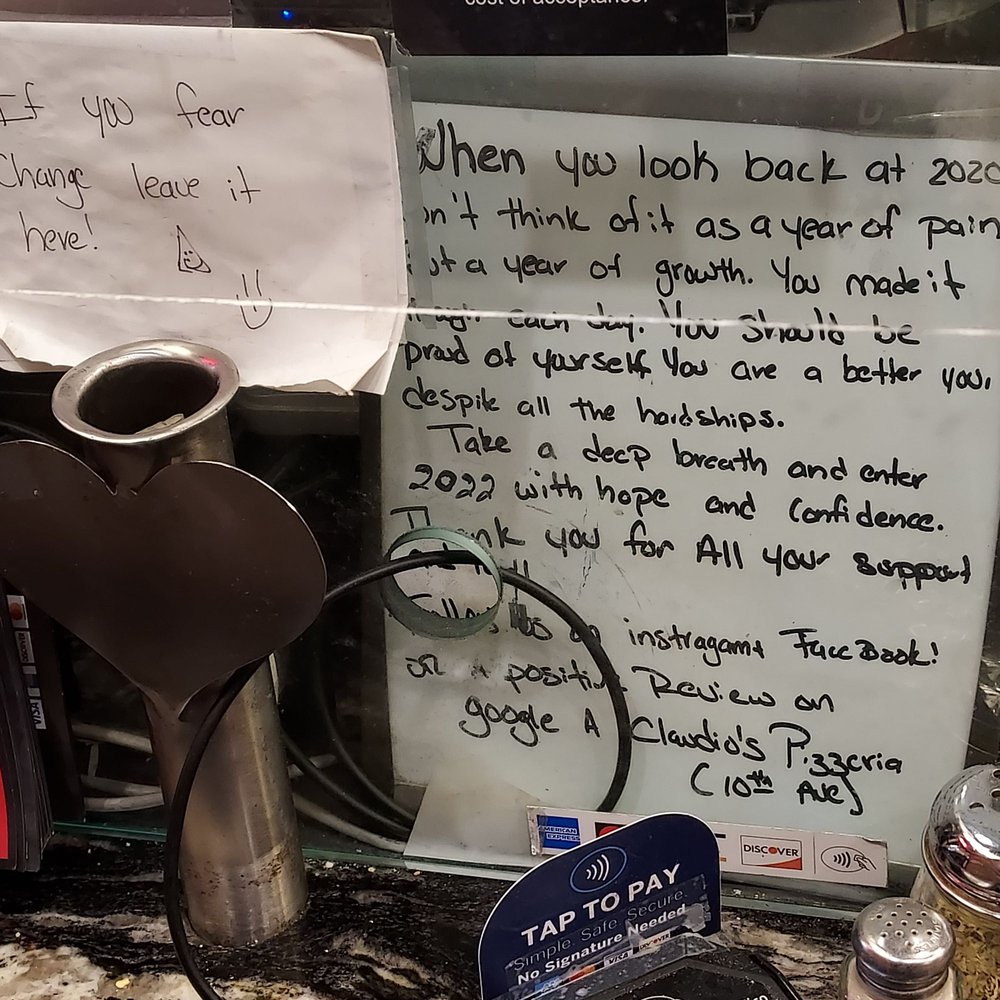 cost of acceptance?
If you fear
Change leave it
here!
When you look back at 2020
think of it as a year of pain
a year of growth. You made it
each day. You should be
proud of yourself. You are a better you,
despite all the hardships.
Take a deep breath and enter
2022 with hope and Confidence.
you for All your support
us on instragam + FaceBook!
or a positive Review on
google A Claudio's Pizzeria
(10th Ave)
AMERICAN EXPRESS
DISCOVER
TAP TO PAY
Simple Safe Secure
No Signature Needed
VISA
DISCOVER
DISCOVER
VISA